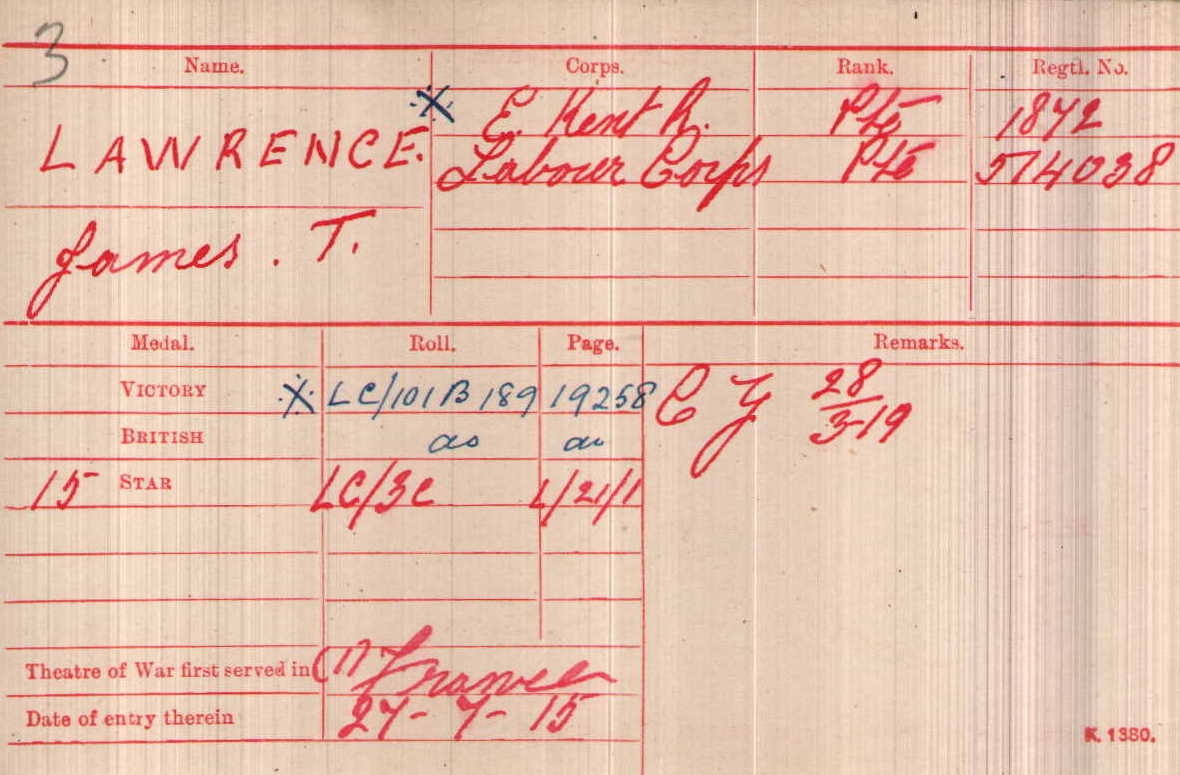 3
Name. Corps. Rank. Regtl. No.
※ E. Kent R. Pte 1872
LAWRENCE. Labour Corps Pte 514038
James. T.
Medal. Roll. Page. Remarks.
VICTORY ※ LC/101B189 19258 C Z 28/3-19
BRITISH do do
15 STAR LC/3C L/21/1
Theatre of War first served in (1) France
Date of entry therein 27-7-15
K. 1380.